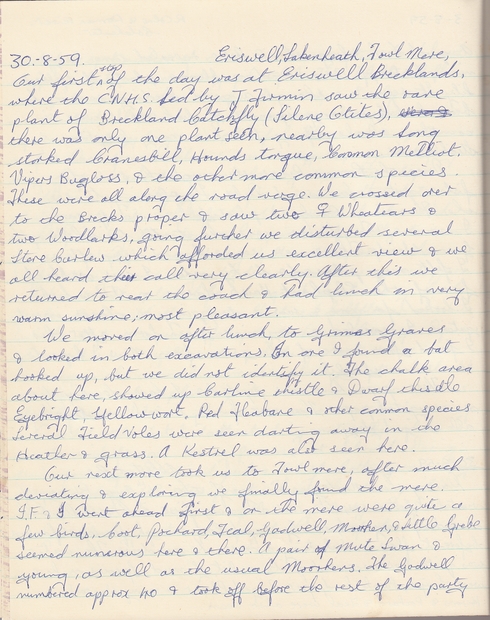 30-8-59. Eriswell, Lakenheath, Fowl Mere,
Our first stop of the day was at Eriswell Brecklands,
where the C.N.H.S. led by J Firmin saw the rare
plant of Breckland Catchfly (Silene Otites),
there was only one plant seen, nearby was Long
storked Cranesbill, Hounds tongue, Common Melliot,
Vipers Bugloss, & the other more common species
These were all along the road verge. We crossed over
to the Brecks proper & saw two ♀ Wheatears &
two Woodlarks, going further we disturbed several
Stone Curlew which afforded us excellent view & we
all heard their call very clearly. After this we
returned to near the coach & had lunch in very
warm sunshine; most pleasant.
We moved on after lunch, to Grimes Graves
& looked in both excavations. In one I found a bat
hooked up, but we did not identify it. The chalk area
about here, showed up Carline thistle & Dwarf thistle
Eyebright, Yellow wort, Red Fleabane & other common species
Several Field Voles were seen darting away in the
Heather & grass. A Kestrel was also seen here.
Our next move took us to Fowlmere, after much
deviating & exploring we finally found the mere.
J.F. & I went ahead first & on the mere were quite a
few birds. Coot, Pochard, Teal, Gadwell, Moorhen, & Little Grebe
seemed numerous here & there. A pair of Mute Swan &
young, as well as the usual Moorhens. The Gadwell
numbered approx 40 & took off before the rest of the party